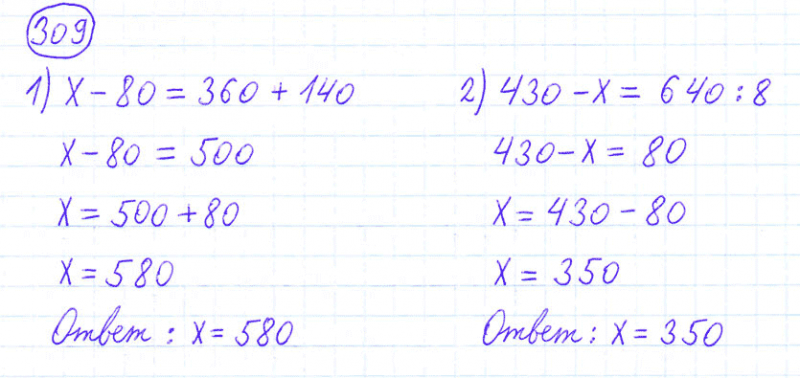 309
1) x - 80 = 360 + 140
x - 80 = 500
x = 500 + 80
x = 580
Ответ : x = 580
2) 430 - x = 640 : 8
430 - x = 80
x = 430 - 80
x = 350
Ответ : x = 350